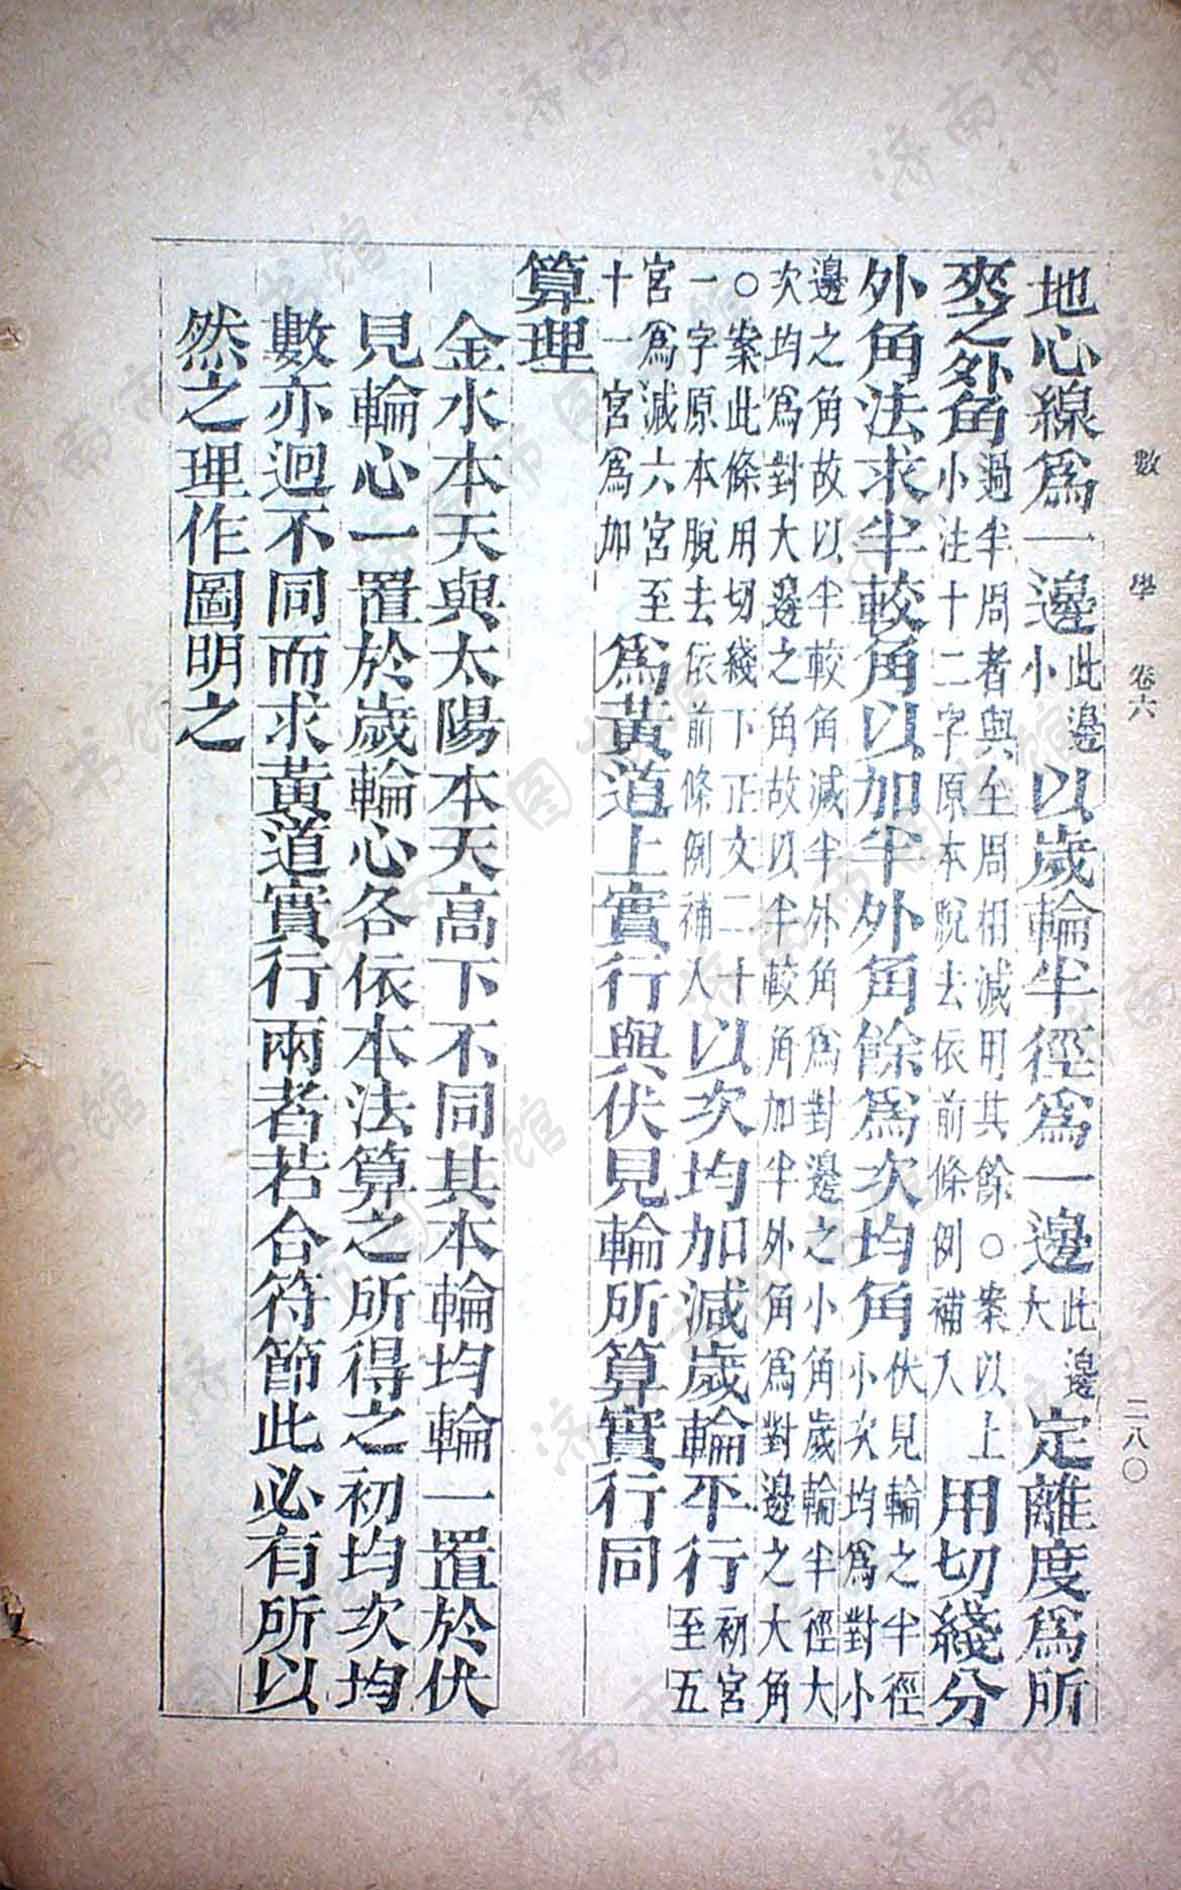 數學 卷六 二八〇
地心線爲一邊此邊小以歲輪半徑爲一邊此邊大定離度爲所
夾之外角過半周者與全周相減用其餘○案以上小注十二字原本脫去依前條例補入用切綫分
外角法求半較角以加半外角餘爲次均角伏見輪之半徑小次均爲對小
邊之角故以半較角減半外角爲對邊之小角歲輪半徑大次均爲對大邊之角故以半較角加半外角爲對邊之大角
○案此條用切綫下正文二十一字原本脫去依前條例補入以次均加減歲輪平行初宮至五
宮爲減六宮至十一宮爲加爲黃道上實行與伏見輪所算實行同
算理
金水本天與太陽本天高下不同其本輪均輪一置於伏
見輪心一置於歲輪心各依本法算之所得之初均次均
數亦逈不同而求黃道實行兩者若合符節此必有所以
然之理作圖明之
济南市图书馆